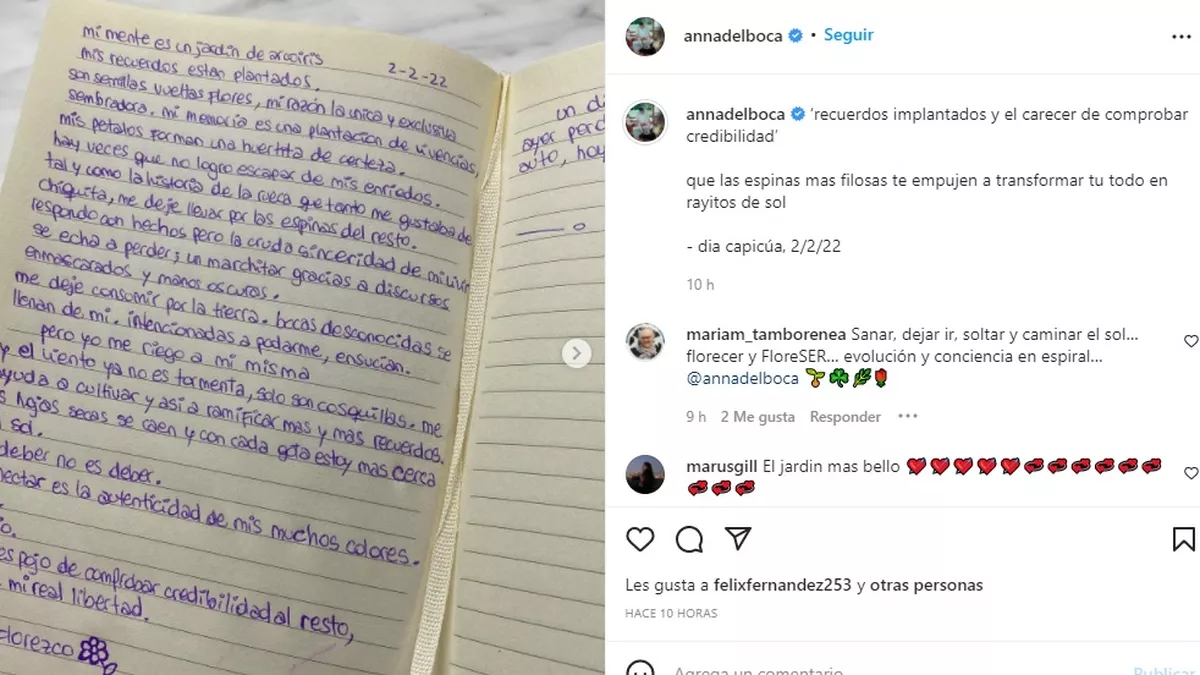 mi mente es un jardín de arcoiris
2-2-22
mis recuerdos estan plantados.
son semillas vueltas flores, mi razón la unica y exclusiva
sembradora. mi memoria es una plantacion de vivencias,
mis petalos forman una huertita de certeza.
hay veces que no logro escapar de mis enriedos.
tal y como la historia de la rueca que tanto me gustaba de
chiquita, me deje llevar por las espinas del resto.
respondo con hechos pero la cruda sinceridad de mi vivir
se echa a perder; un marchitar gracias a discursos
enmascarados y manos oscuras.
me deje consumir por la tierra. bocas desconocidas se
llenan de mi. intencionadas a podarme, ensucian.
pero yo me riego a mi misma
y el viento ya no es tormenta, solo son cosquillas. me
ayuda a cultivar y asi a ramificar mas y mas recuerdos.
hojas secas se caen y con cada gota estoy mas cerca
sol.
deber no es deber.
nectar es la autenticidad de mis muchos colores.
es pojo de comprobar credibilidad al resto,
mi real libertad.
florezco
un di
ayer perd
auto, hoy
annadelboca • Seguir
annadelboca 'recuerdos implantados y el carecer de comprobar
credibilidad'
que las espinas mas filosas te empujen a transformar tu todo en
rayitos de sol
- dia capicúa, 2/2/22
10 h
mariam_tamborenea Sanar, dejar ir, soltar y caminar el sol...
florecer y FloreSER... evolución y conciencia en espiral...
@annadelboca 🌱☘️🌿🌹
9 h 2 Me gusta Responder
marusgill El jardin mas bello 💓💓💓💓💓💞💞💞💞💞💞
💞💞💞
Les gusta a felixfernandez253 y otras personas
HACE 10 HORAS
Agrega un comentario
Publicar